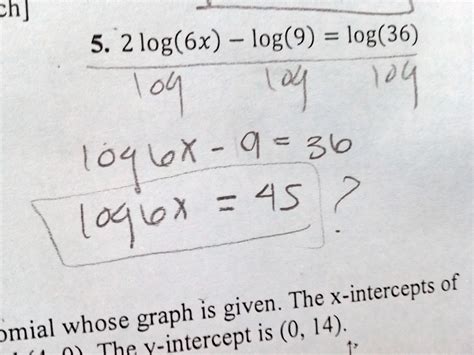 ch]
5. 2 log(6x) − log(9) = log(36)
log log log
log 6x - 9 = 36
log 6x = 45 ?
omial whose graph is given. The x-intercepts of
The y-intercept is (0, 14).